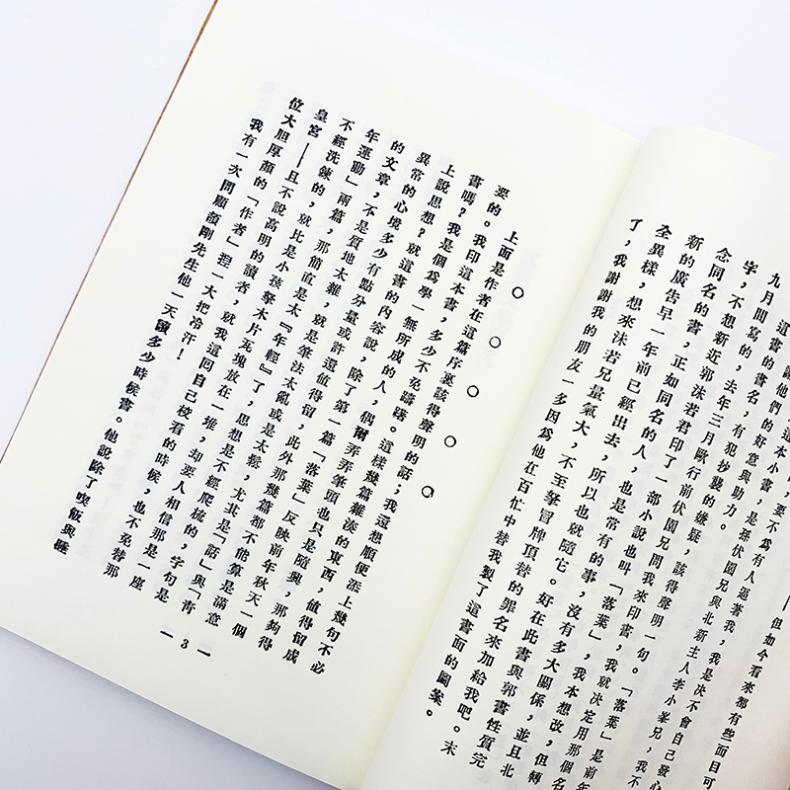 ——但如今看來都有些面目可
這本小書,要不為有人逼著我,我是決不會自己發心
謝他們的好意與助力。是孫伏園兄與北新主人李小峯兄,我不
這書的書名,有犯抄襲的嫌疑,該得聲明一句。「落葉」是前年
九月間寫的,去年三月歐行前伏園兄問我來印書,我就決定用那個名
字,不想新近郭沫若君印了一部小說也叫「落葉」,我本想改,但轉
念同名的書,正如同名的人,也是常有的事,沒有多大關係,並且北
新的廣告早一年前已經出去,所以也就隨它。好在此書與郭書性質完
全異樣,想來沫若兄量氣大,不至拏冒牌頂替的罪名來加給我吧。末
了,我謝謝我的朋友一多因為他在百忙中替我製了這書面的圖案。
○○○○○
上面是作者在這篇序裏該得聲明的話;我還想順便添上幾句不必
要的。我印這本書,多少不免躊躇。這樣幾篇雜湊的東西,值得留成
書嗎?我是個為學一無所成的人,偶爾弄弄筆頭也只是隨興,那夠得
上說思想?就這書的內容說,除了第一篇「落葉」反映前年秋天一個
異常的心境多少有點分量或許還值得留,此外那幾篇都不能算是滿意
的文章,不是質地太雜,就是筆法太亂或是太鬆,尤其是「話」與「青
年運動」兩篇,那簡直是太「年輕」了,思想是不經爬梳的,字句是
不經洗鍊的,就比是小孩拏木片瓦塊放在一堆,却要人相信那是一座
皇宮——且不說高明的讀者,就我這回自己校看的時候,也不免替那
位大胆厚顏的「作者」捏一大把冷汗!
我有一次問顧頡剛先生他一天讀多少時候書。他說除了喫飯與睡
— 3 —